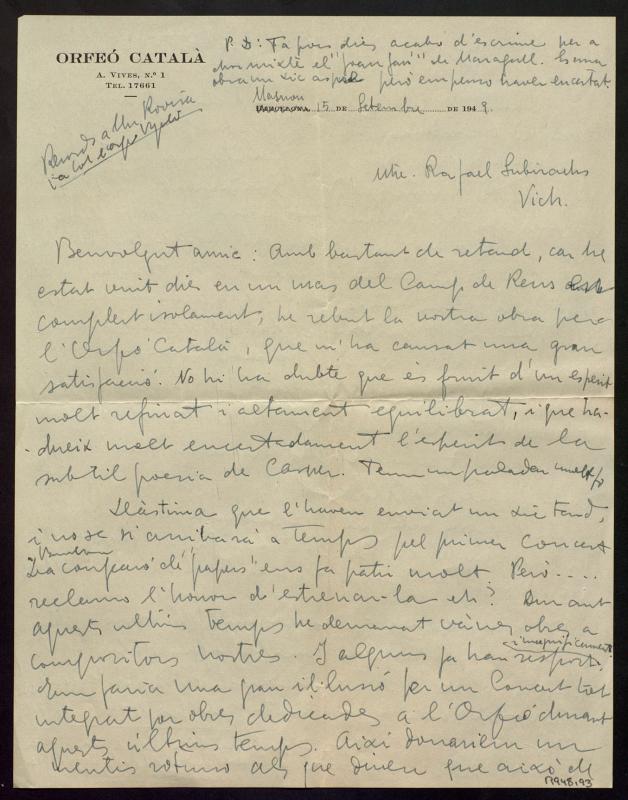 P. D: Fa pocs dies acabo d'escriure per a
chor mixte el "Joan Garí" de Maragall. És una
obra un xic aspre però em penso haver encertat.
ORFEÓ CATALÀ
A. VIVES, N.º 1
TEL. 17661
BARCELONA 15 DE Setembre DE 1949.
Records a Mn Rovirà
i a tot l'orfeó Vigatà
Mtre. Rafael Subirachs
Vich.
Benvolgut amic: Amb bastant de retard, car he
estat vuit dies en un mas del Camp de Reus
complert isolament, he rebut la vostra obra per a
l'Orfeó Català, que m'ha causat una gran
satisfacció. No hi ha dubte que és fruit d'un esperit
molt refinat i altament equilibrat, i que tra-
dueix molt encertadament l'esperit de la
subtil poesia de Carner. Teniu un paladar molt fi
Llàstima que l'haveu enviat un xic tard,
i no se si arribarà a temps pel primer concert
La confecció de "papers" ens fa patir molt. Però....
reclamo l'honor d'estrenar-la eh? Durant
aquests ultims temps he demanat vàries obres a
compositors nostres i alguns ja han respost.
i magnificament
Em faria una gran il·lusió fer un Concert tot
integrat per obres dedicades a l'Orfeó durant
aquests últims temps. Així donariem un
mentis rotund als que diuen que això de
M948/93